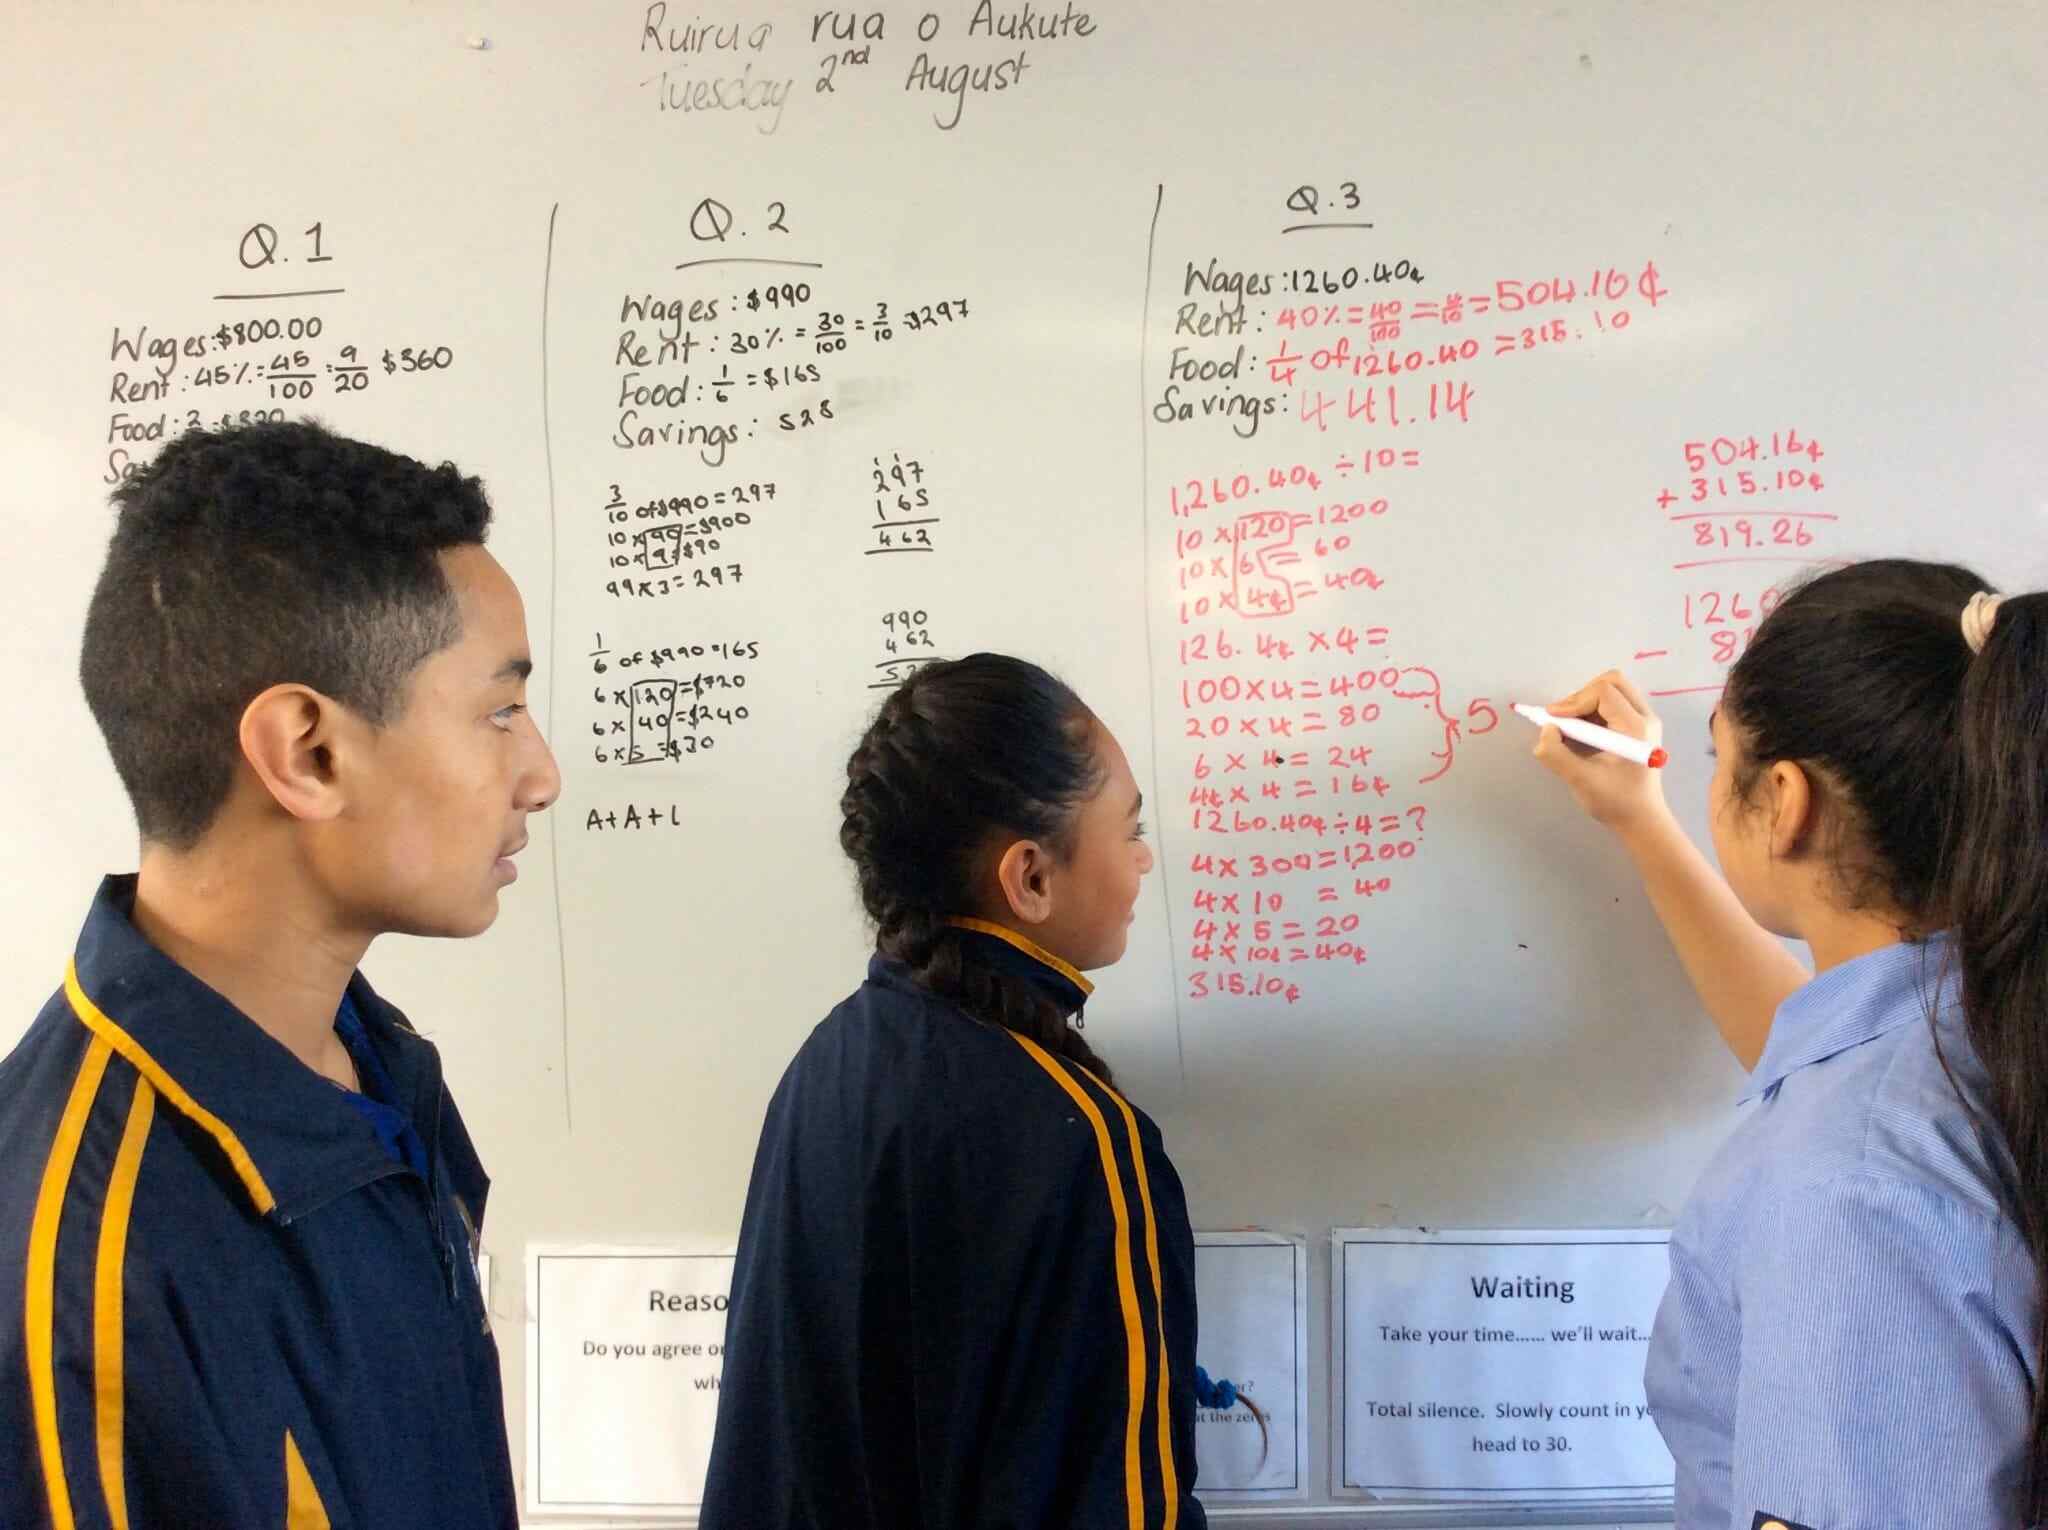 Ruirua rua o Aukute
Tuesday 2nd August
Q.1
Wages:$800.00
Rent: 45%=45/100=9/20 $360
Food:
Q.2
Wages: $990
Rent: 30%=30/100=3/10=$297
Food: 1/6=$165
Savings: 528
3/10 of $990=297
10×90=$900
10×9=$90
99×3=297
297
165
462
1/6 of $990=165
6×120=$720
6×40=$240
6×5=$30
990
462
A+A+L
Q.3
Wages:1260.40¢
Rent: 40%=40/100=4/10=504.16¢
Food: 1/4 of 1260.40=315.10
Savings: 441.14
1,260.40¢÷10=
10×120=1200
10×6=60
10×4¢=40¢
126.4¢×4=
100×4=400
20×4=80
6×4=24
4¢×4=16¢
5
1260.40¢÷4=?
4×300=1,200
4×10=40
4×5=20
4×10¢=40¢
315.10¢
504.16¢
+315.10¢
819.26
1260
-
Do you agree
Waiting
Take your time...... we'll wait...
Total silence. Slowly count in
head to 30.